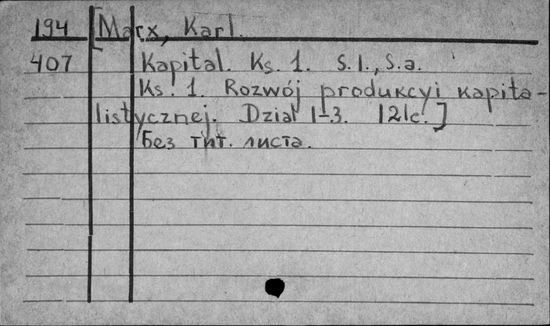 194 [Marx, Karl.
407 Kapital. Ks. 1. S.l., s.a.
Ks. 1. Rozwój produkcyi kapita-
listycznej. Dział I-3. 121c.]
Без тит. листа.